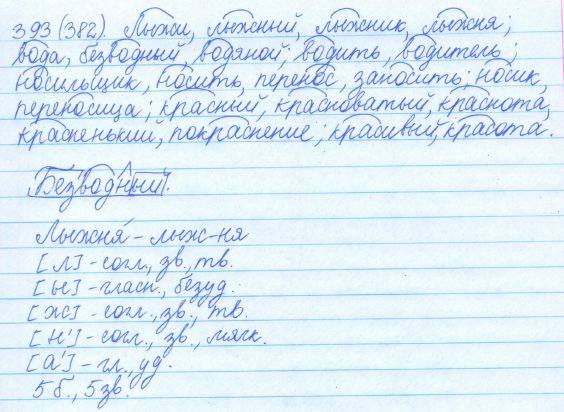 393 (382). Лыжи, лыжный, лыжник, лыжня;
вода, безводный, водяной; водить, водитель;
носильщик, носить, перенос, заносить; носик,
переносица; красный, красноватый, краснота,
красненький, покраснение; красивый, красота.
Безводный.
Лыжня́ – лыж-ня
[л] – согл., зв., тв.
[ы] – гласн., безуд.
[ж] – согл., зв., тв.
[н'] – согл., зв., мягк.
[а'] – гл., уд.
5 б., 5 зв.